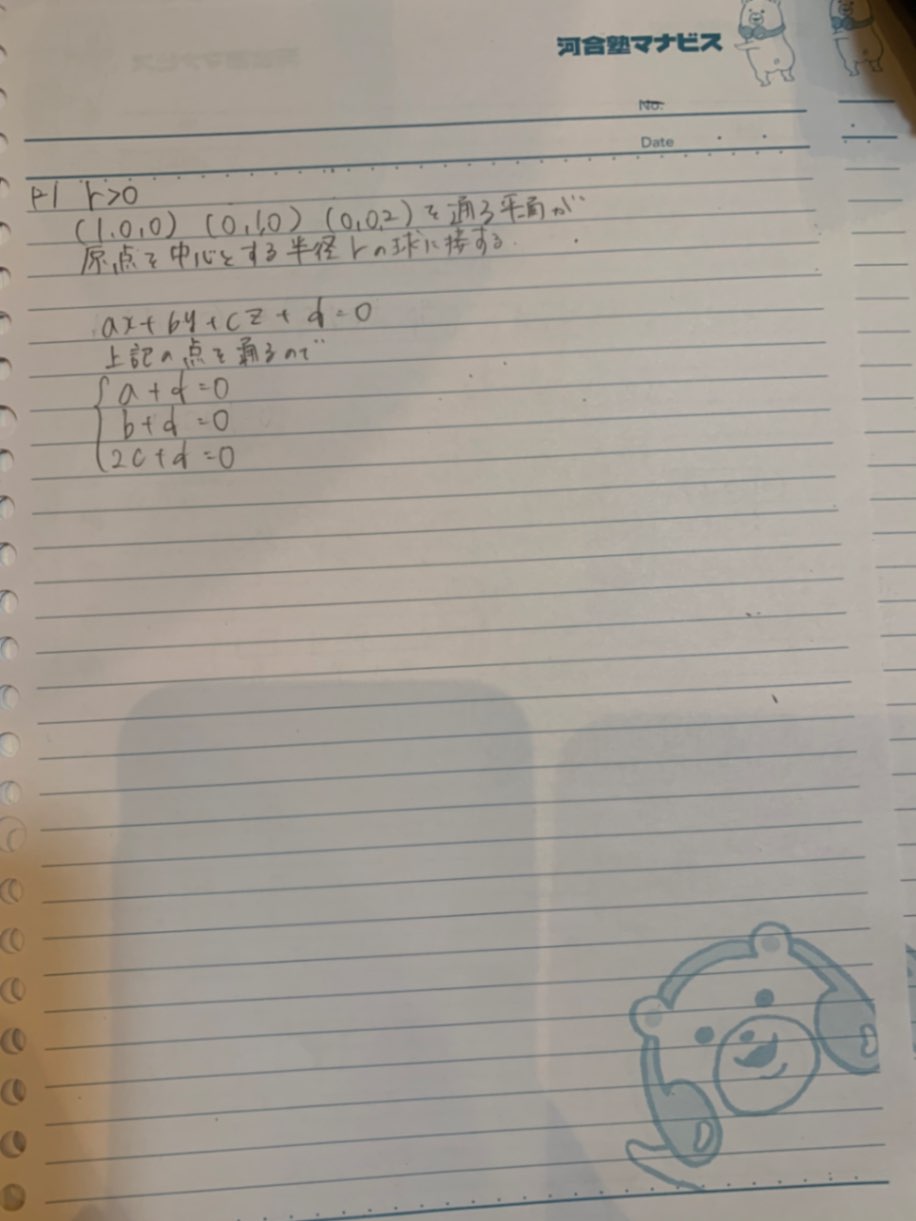 河合塾マナビス
No.
Date
r>0
(1,0,0) (0,1,0) (0,0,2)を通る平面が
原点を中心とする半径rの球に接する.
ax+by+cz+d=0
上記の点を通るので
a+d=0
b+d=0
2c+d=0